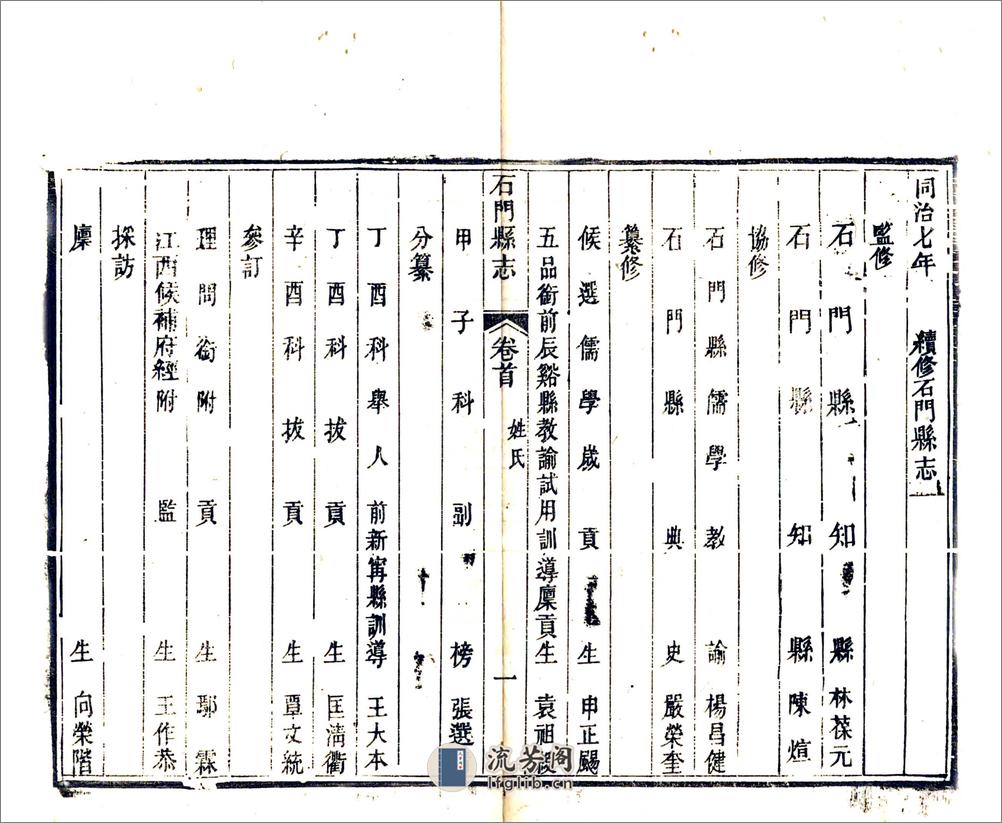 同治七年 續修石門縣志
監修
石門縣知縣 林葆元
石門縣知縣 陳煊
協修
石門縣儒學教諭 楊昌健
石門縣典史 嚴榮奎
纂修
候選儒學歲貢生 申正颺
五品銜前辰谿縣教諭試用訓導廩貢生 袁祖綬
石門縣志 卷首 姓氏 一
甲子科副榜 張選
分纂
丁酉科舉人前新甯縣訓導 王大本
丁酉科拔貢生 匡淸衢
辛酉科拔貢生 覃文統
參訂
理問銜附貢生 鄢霖
江西候補府經附監生 王作恭
採訪
廩生 向榮階
流芳阁
lfglib.cn